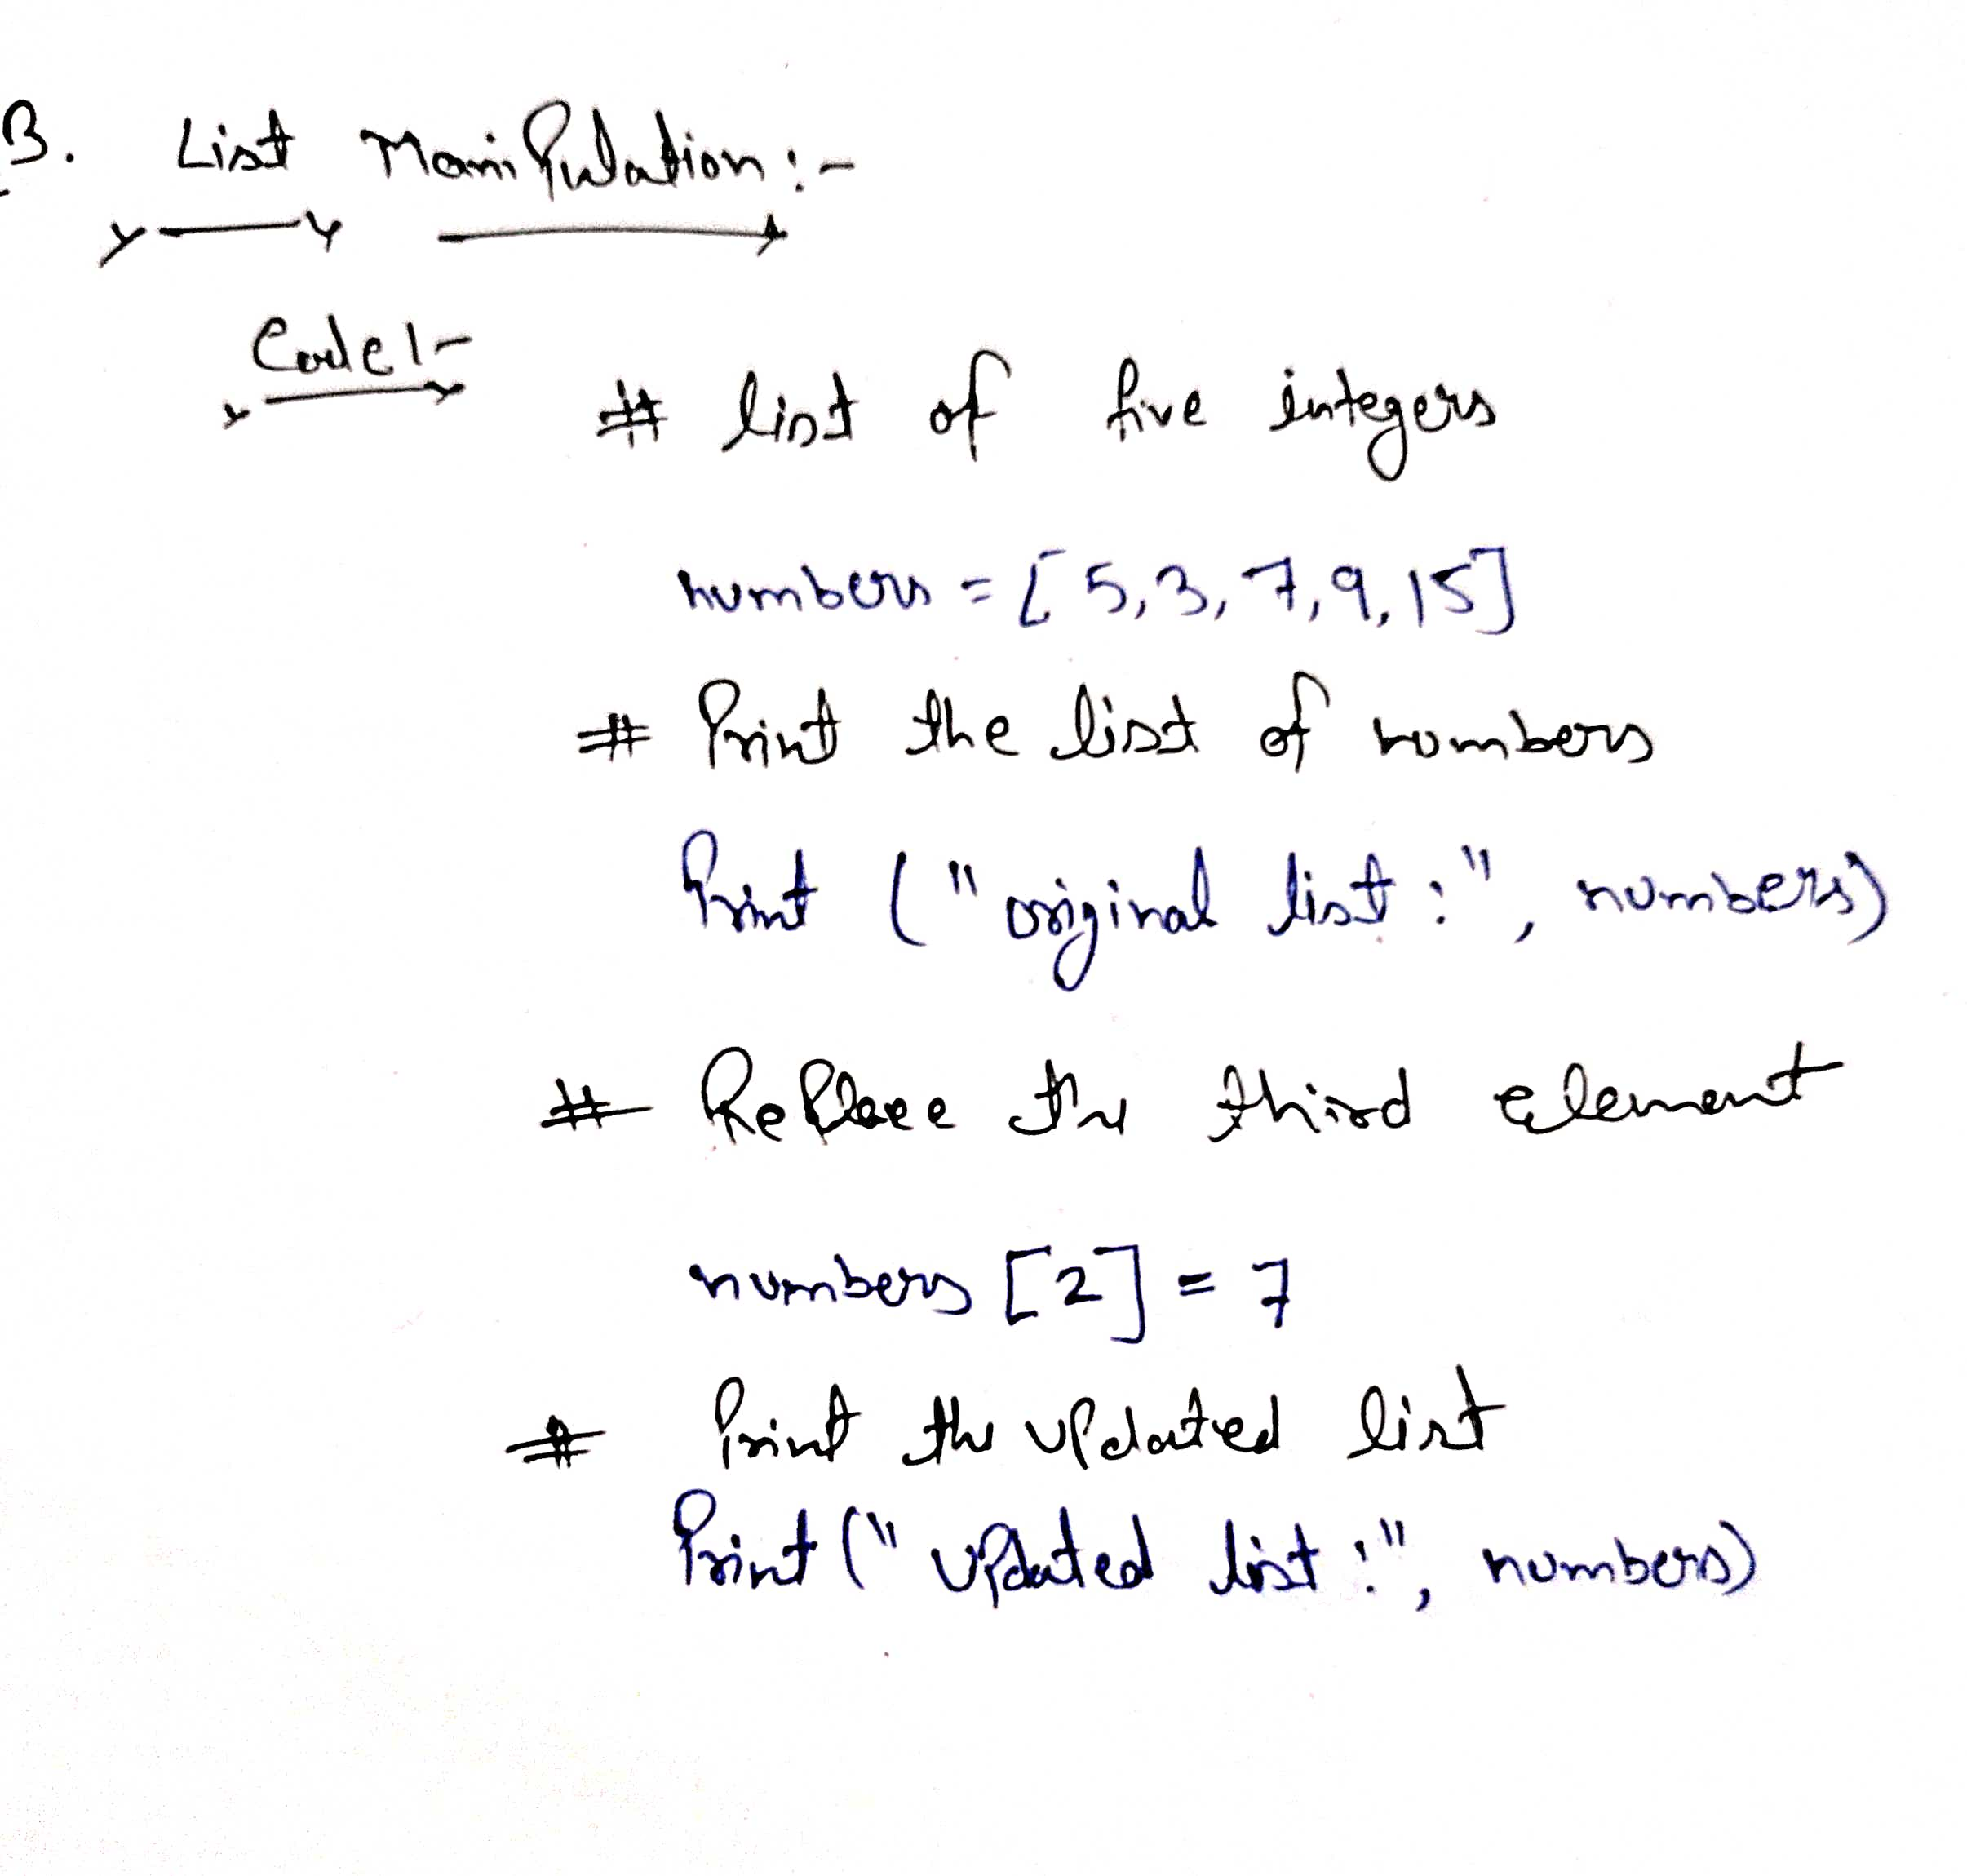 B. List ManiPulation:-
Code:-
# list of five integers
numbers = [5,3,7,9,15]
# Print the list of numbers
Print ("original list:", numbers)
# RePlace the third element
numbers [2] = 7
# Print the uPdated list
Print ("uPdated list:", numbers)